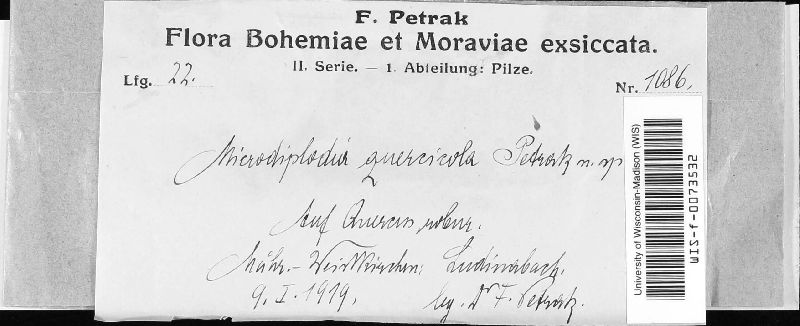 F. Petrak
Flora Bohemiae et Moraviae exsiccata.
II. Serie. — 1. Abteilung: Pilze.
Lfg. 22.
Nr. 1086.
Microdiplodia quercicola Petrak n. sp
Auf Quercus robur.
Mähr.-Weisskirchen: Ludinabach.
9. I. 1919. leg. Dr F. Petrak.
University of Wisconsin-Madison (WIS)
WIS-f-0073532